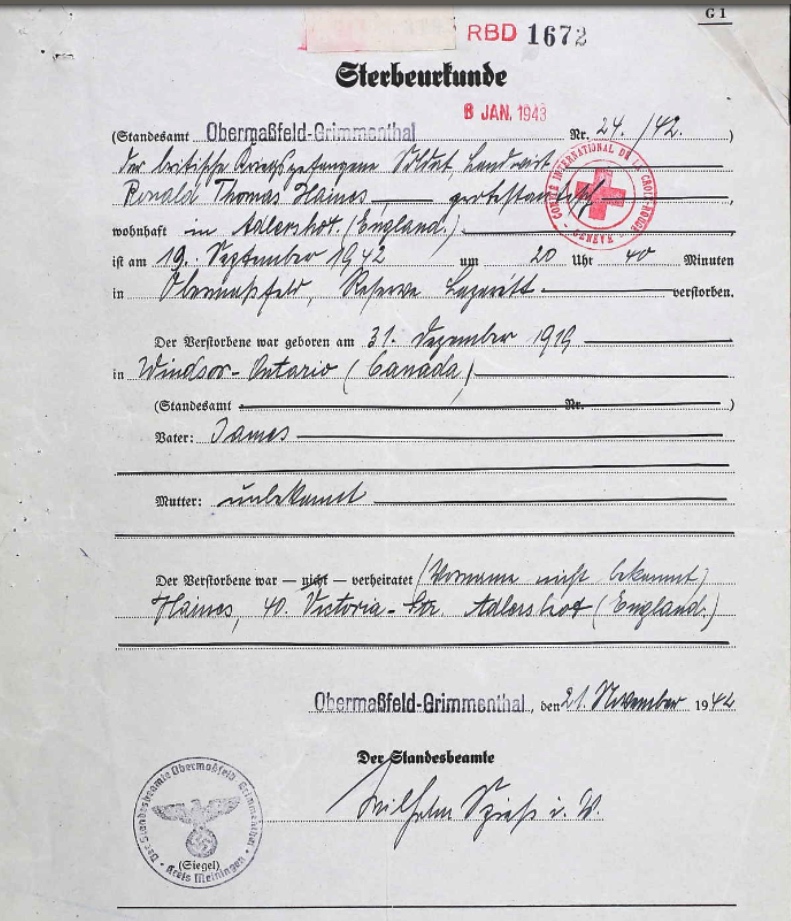 G 1
RBD 1672
Sterbeurkunde
8 JAN. 1943
(Standesamt Obermaßfeld-Grimmenthal Nr. 24./42.)
der britische Kriegsgefangene Soldat, Landwirt
Ronald Thomas Haines protestantisch,
COMITÉ INTERNATIONAL DE LA CROIX-ROUGE - GENÈVE -
wohnhaft in Adlershot. (England.)
ist am 19. September 1942 um 20 Uhr 40 Minuten
in Obermaßfeld, Reserve Lazarett verstorben.
Der Verstorbene war geboren am 31. Dezember 1919
in Windsor-Ontario (Canada)
(Standesamt Nr. )
Vater: James
Mutter: unbekannt
Der Verstorbene war — nicht — verheiratet (Vorname nicht bekannt)
Haines, 40. Victoria-Str. Adlershot (England.)
Obermaßfeld-Grimmenthal, den 21. November 1942
Der Standesbeamte
Wilhelm Spieß i. V.
Der Standesbeamte Obermaßfeld-Grimmenthal
(Siegel)
Kreis Meiningen